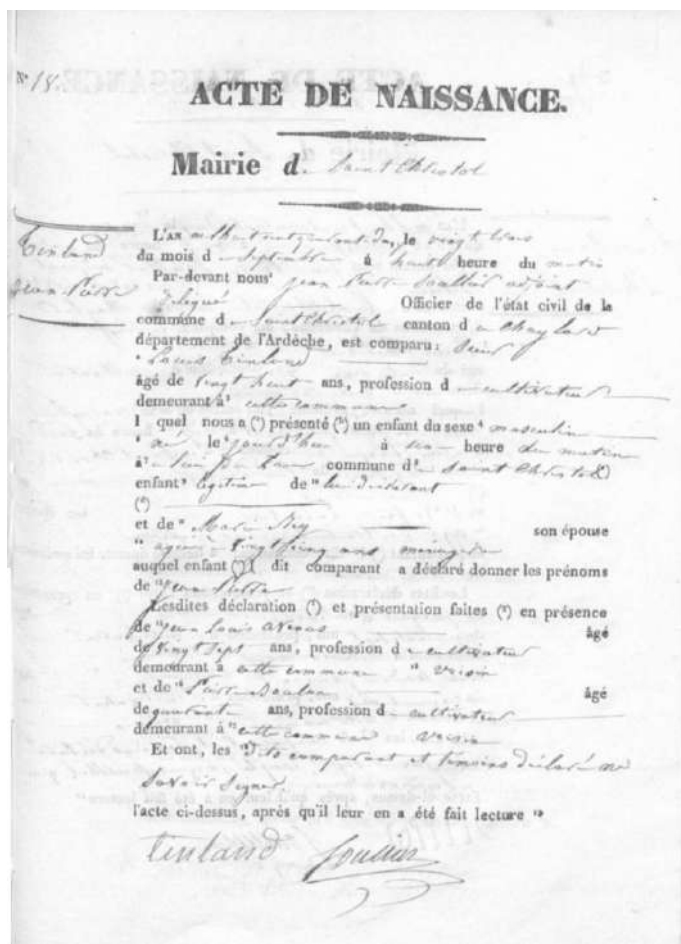 N° 18.
ACTE DE NAISSANCE.
Mairie d. Saint Christol
Tinland
Jean Pierre
L'AN mil huit cent, le vingt trois
du mois d septembre à huit heure du matin
Par-devant nous Jean Pierre Soullier adjoint
délégué Officier de l'état civil de la
commune d Saint Christol canton d Chaylard
département de l'Ardèche, est comparu: Sieur
Louis Tinland
âgé de vingt huit ans, profession d cultivateur
demeurant à cette commune
l quel nous a (") présenté (") un enfant du sexe masculin
né le jourd'hui à heure du matin
à commune d Saint Christol
enfant légitime de lui déclarant
(")
et de Marie son épouse
agée vingt cinq ans ménagère
auquel enfant (") l dit comparant a déclaré donner les prénoms
de Jean Pierre
Lesdites déclaration (") et présentation faites (") en présence
de Jean Louis âgé
de vingt sept ans, profession d cultivateur
demeurant à cette commune voisin
et de Pierre âgé
de quarante ans, profession d cultivateur
demeurant à cette commune voisin
Et ont, les dits comparant et témoins déclaré ne
savoir signer
l'acte ci-dessus, après qu'il leur en a été fait lecture
Tinland Soullier